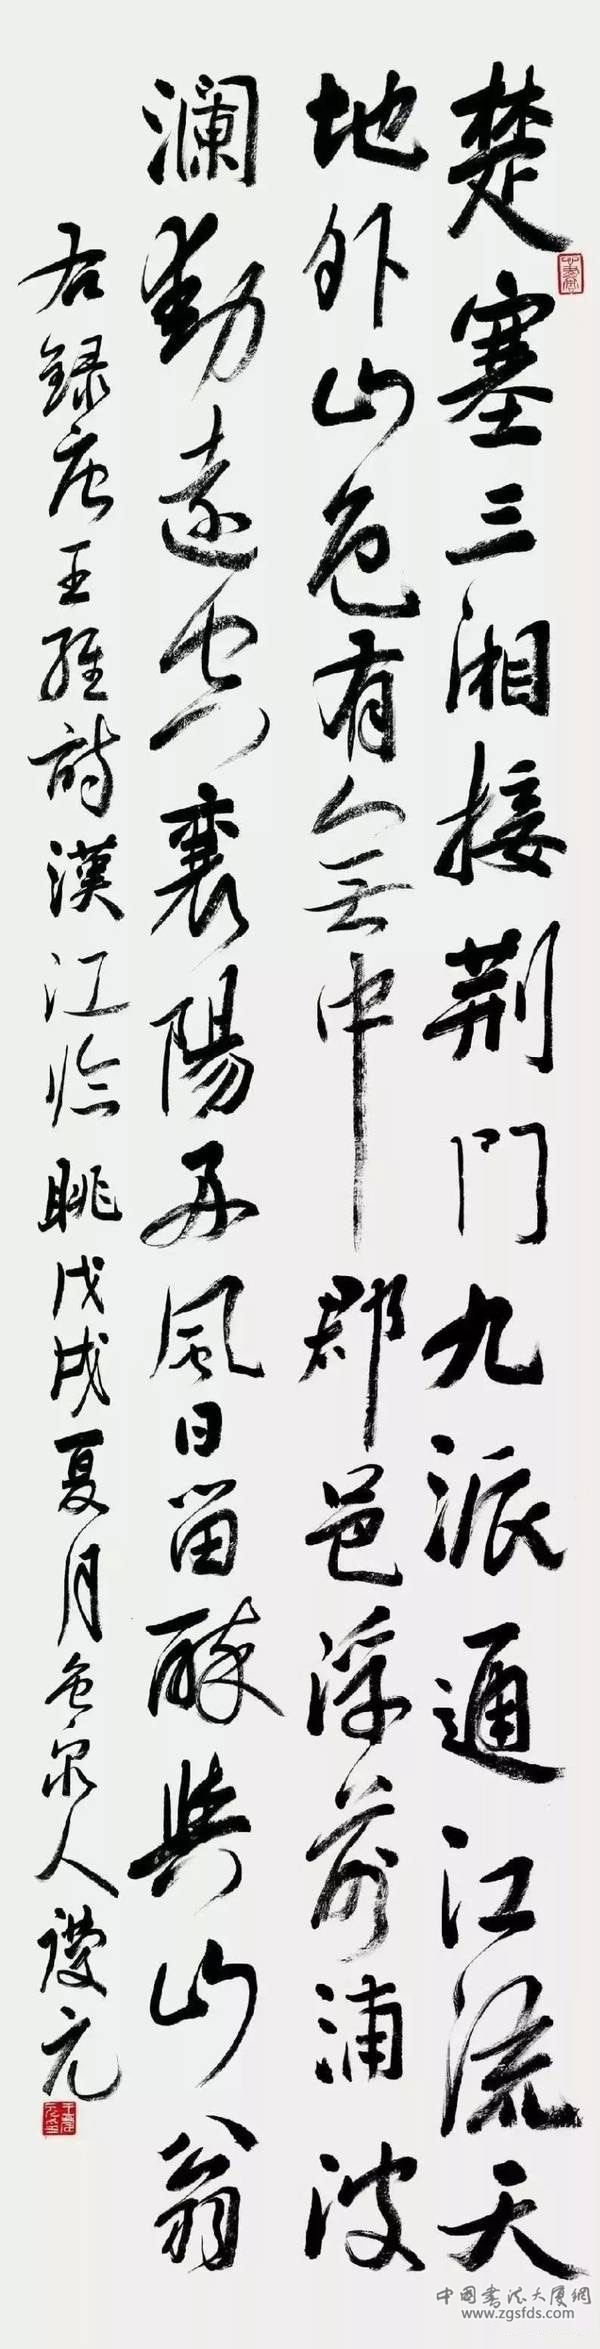 楚塞三湘接荆門九派通江流天
地外山色有無中郡邑浮前浦波
瀾動遠空襄陽好風日留醉與山翁
右録唐王維詩漢江臨眺戊戌夏月泉人元
中国书法大厦網
www.zgsfds.com